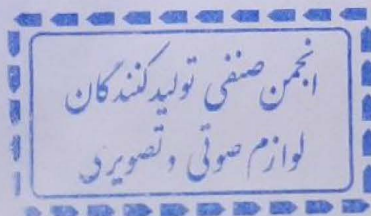 انجمن صنفی تولیدکنندگان
لوازم صوتی و تصویری